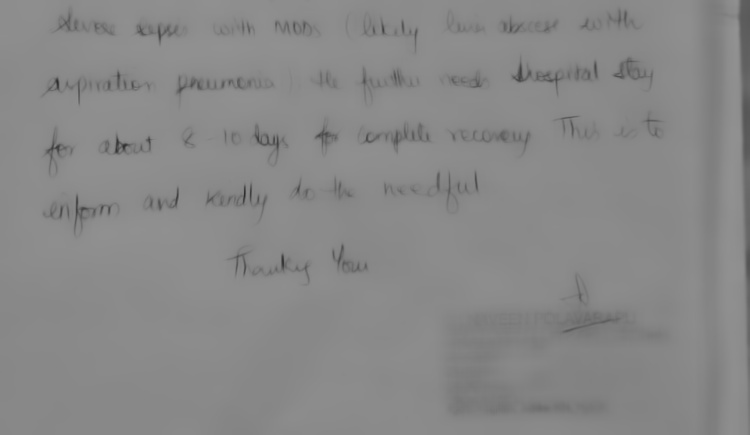 severe sepsis with MODS (likely liver abscess with
aspiration pneumonia) He further needs hospital stay
for about 8-10 days for complete recovery This is to
enform and kindly do the needful
Thanky You